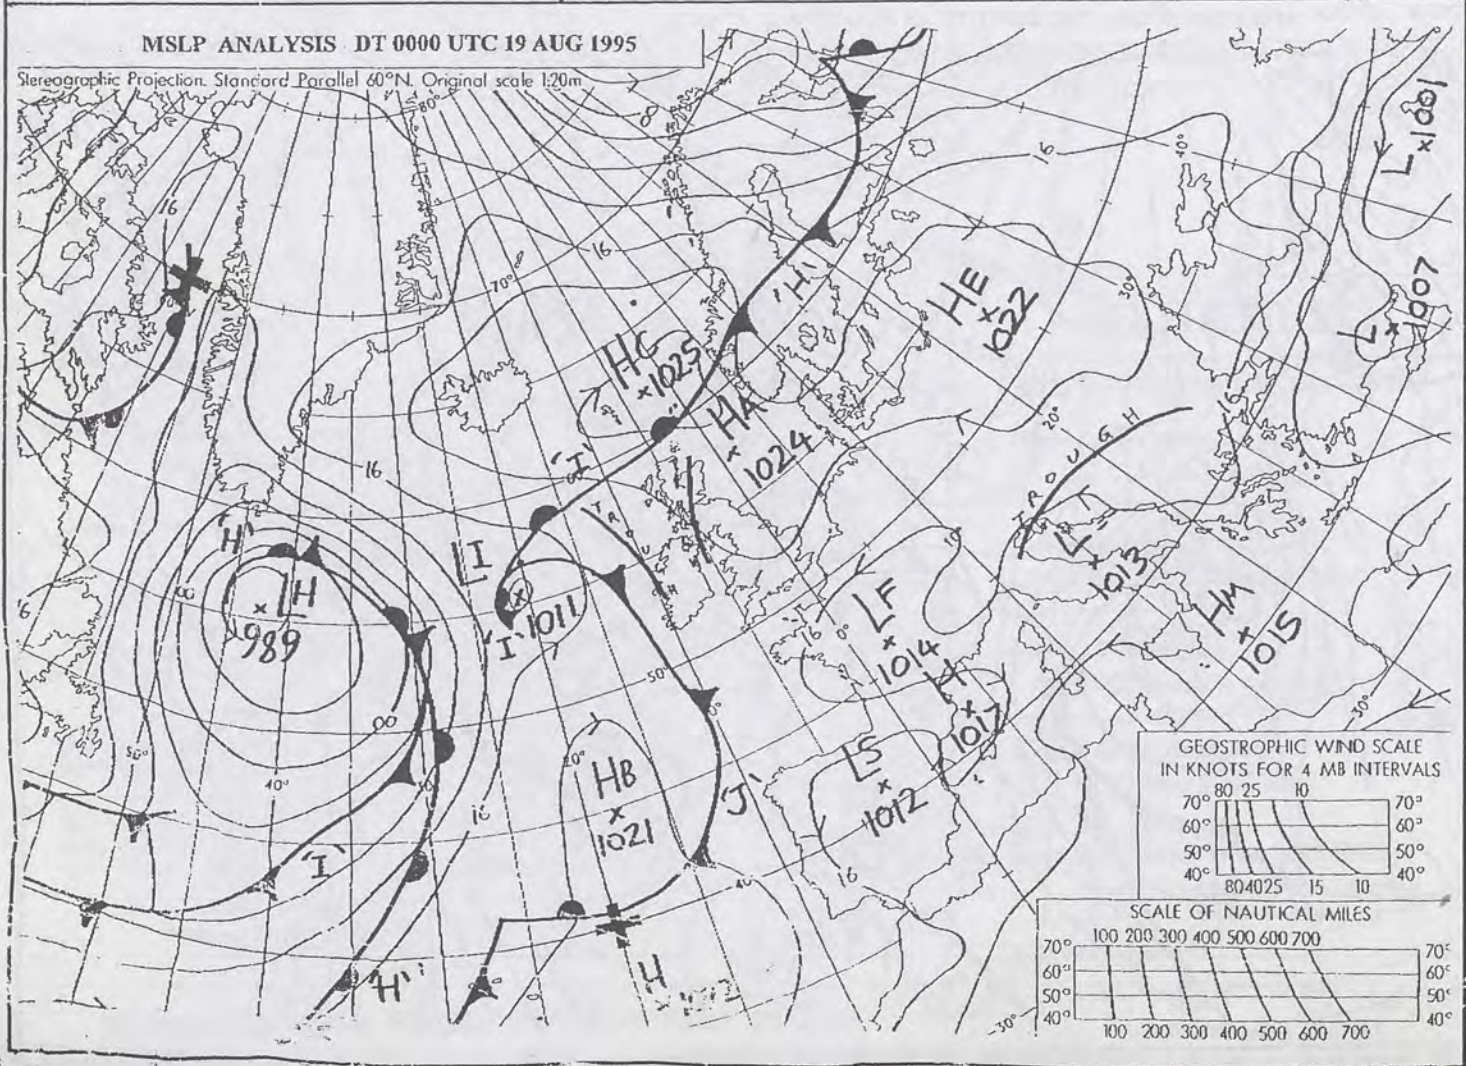 MSLP ANALYSIS DT 0000 UTC 19 AUG 1995
Stereographic Projection. Standard Parallel 60°N. Original scale 1:20m
80°
8
16
16
L
x1001
40°
16
16
70°
'H'
HE
x
1022
30°
L
x1007
HG
x1025
HA
x
1024
20°
TROUGH
16
'I'
16
TROUGH
'H'
LH
x
989
LI
x
'I'
1011
10°
L
x
1013
LF
x
1014
HM
x
1015
0°
16
H
x
1017
50°
00
50°
40°
20°
HB
x
1021
'J'
LS
x
1012
16
16
40°
30°
'I'
'H'
H
30°
GEOSTROPHIC WIND SCALE
IN KNOTS FOR 4 MB INTERVALS
80 25 10
70° 70°
60° 60°
50° 50°
40° 40°
80 40 25 15 10
SCALE OF NAUTICAL MILES
100 200 300 400 500 600 700
70° 70°
60° 60°
50° 50°
40° 40°
100 200 300 400 500 600 700